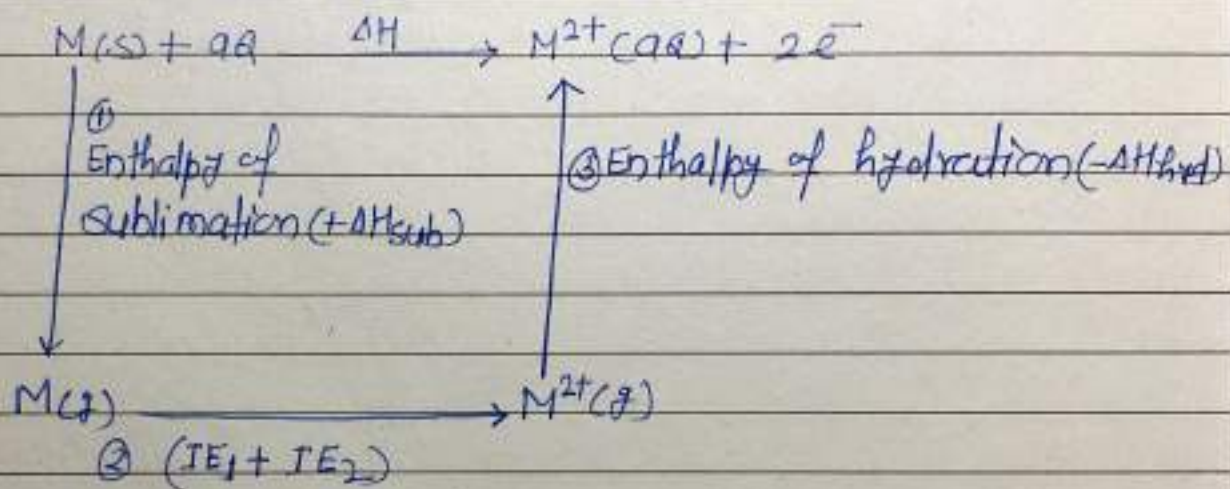 M(s) + aq ΔH → M²⁺(aq) + 2e⁻
①
Enthalpy of
sublimation (+ΔHsub)
③ Enthalpy of hydration (-ΔHhyd)
M(g) → M²⁺(g)
② (IE₁ + IE₂)